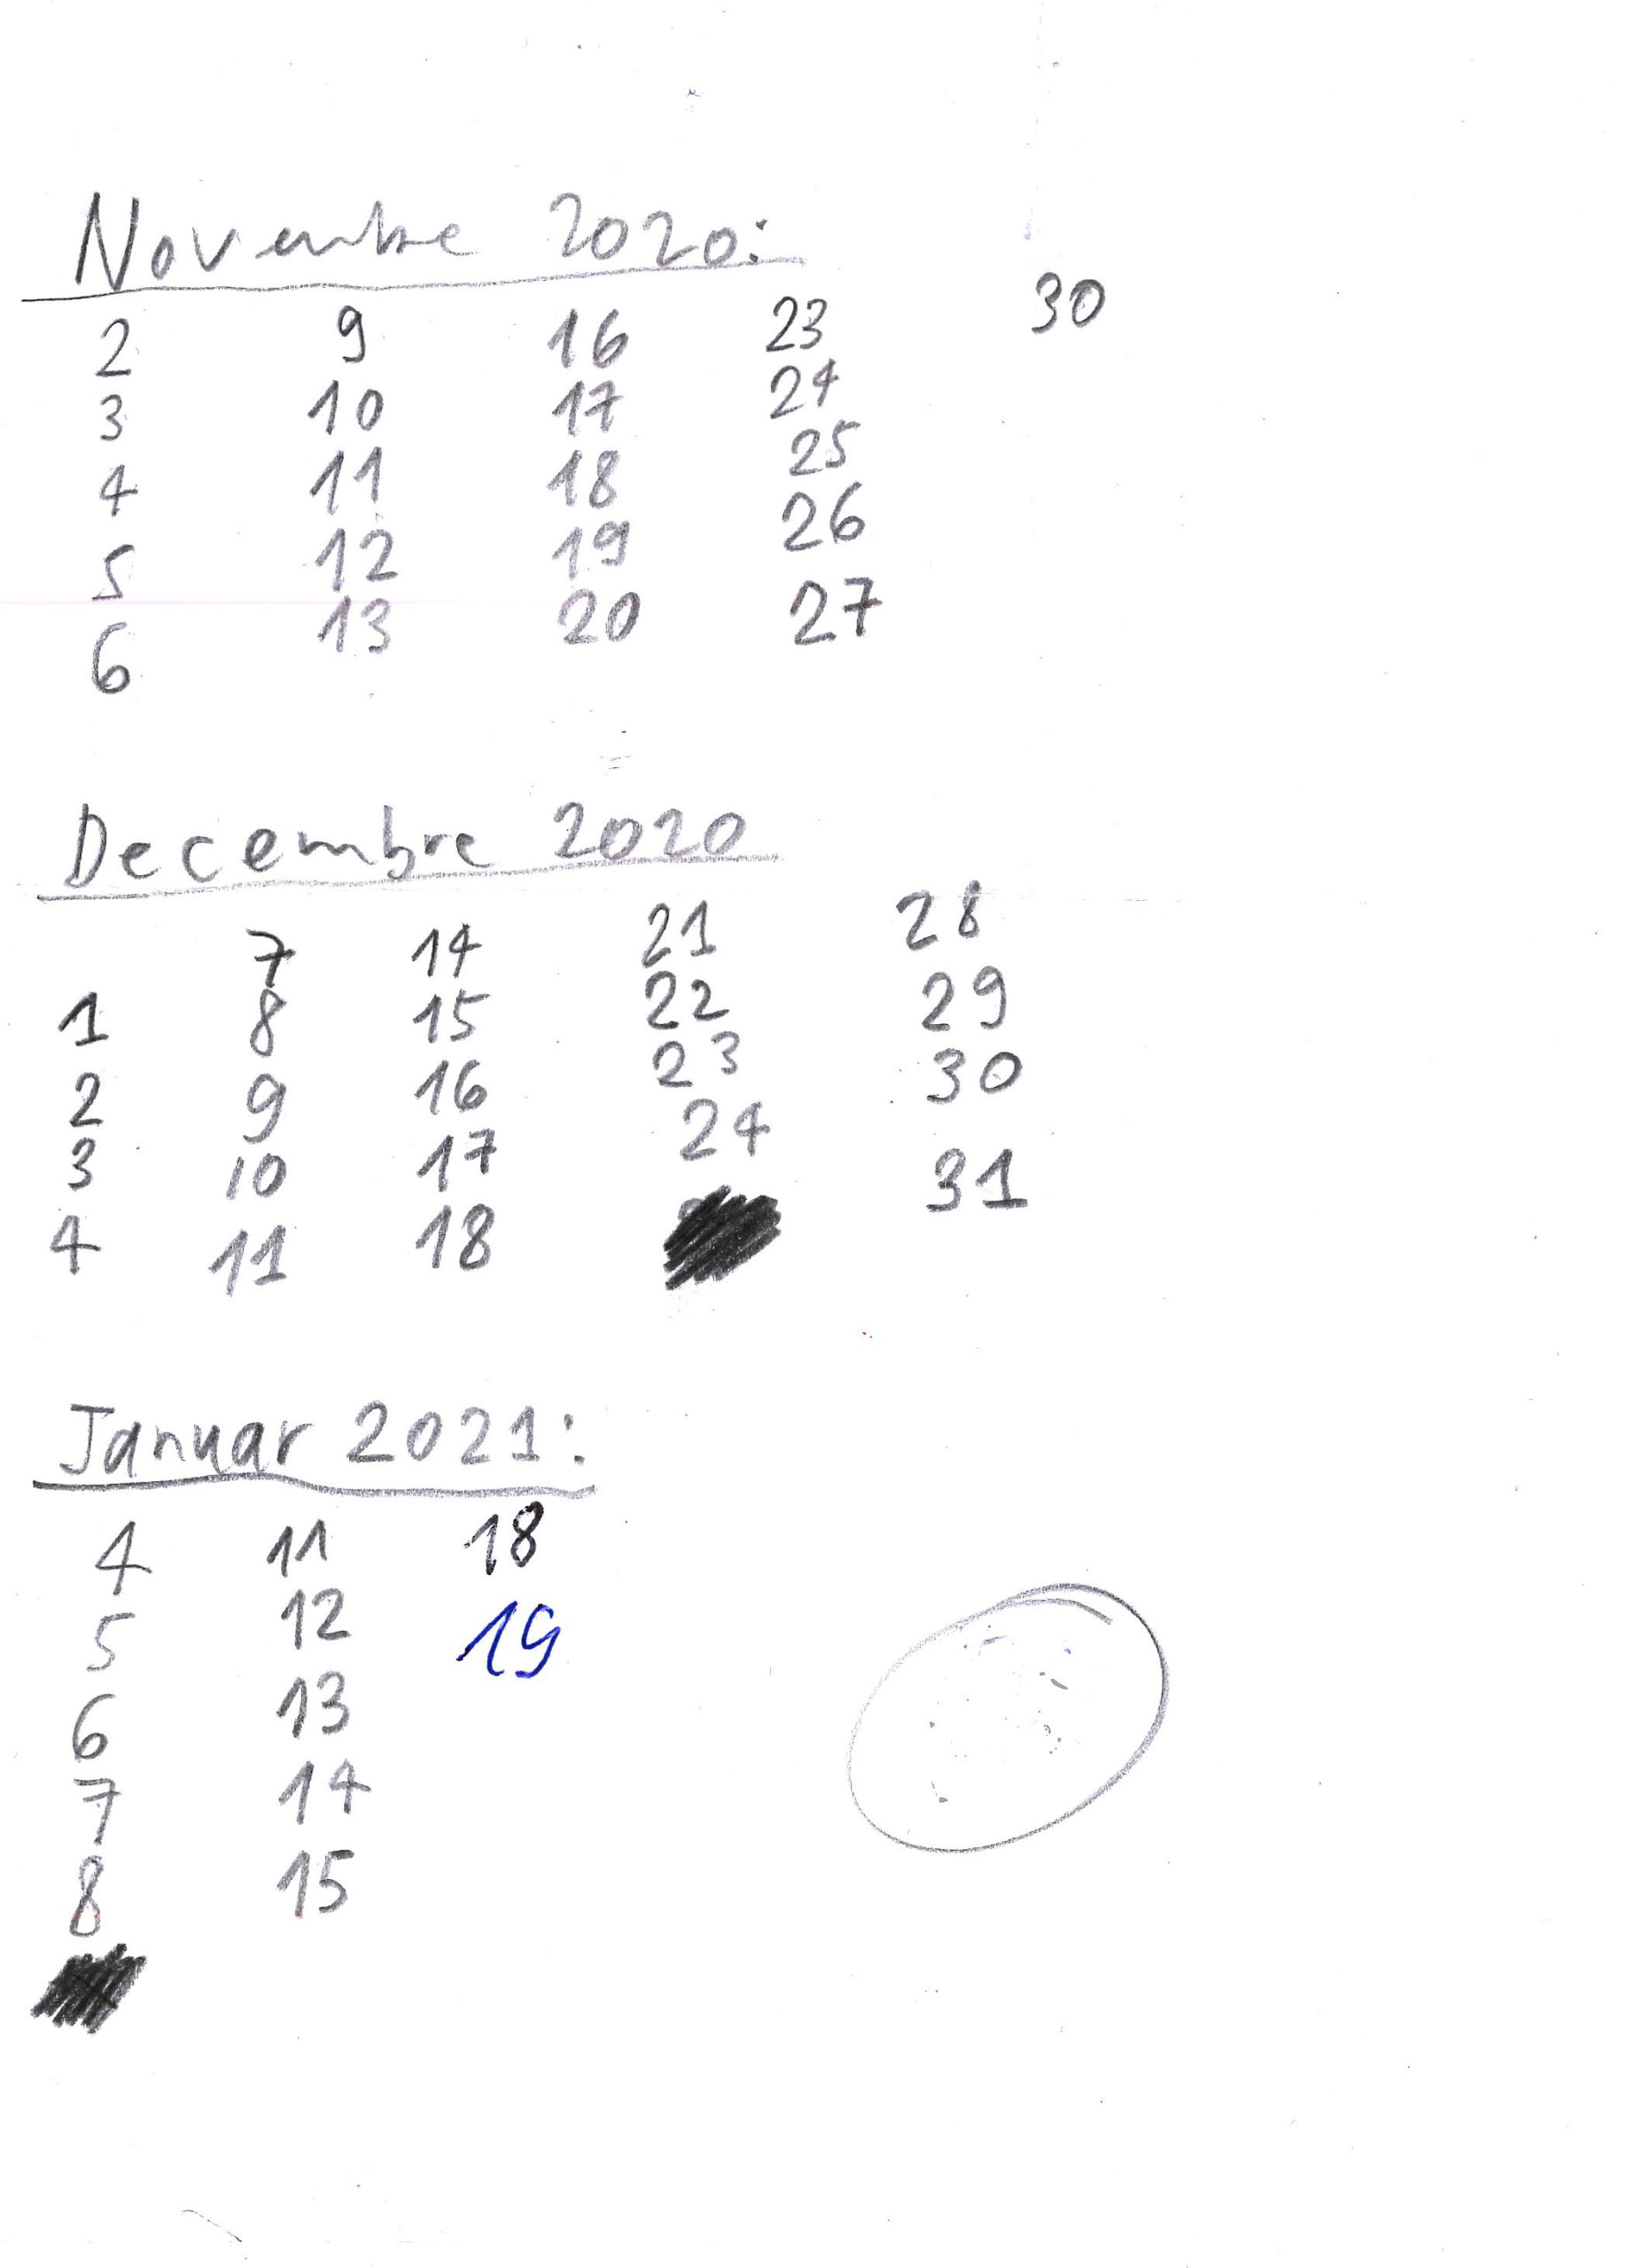 Novembre 2020:
2 9 16 23 30
3 10 17 24
4 11 18 25
5 12 19 26
6 13 20 27
Decembre 2020
7 14 21 28
1 8 15 22 29
2 9 16 23 30
3 10 17 24 31
4 11 18
Januar 2021:
4 11 18
5 12 19
6 13
7 14
8 15